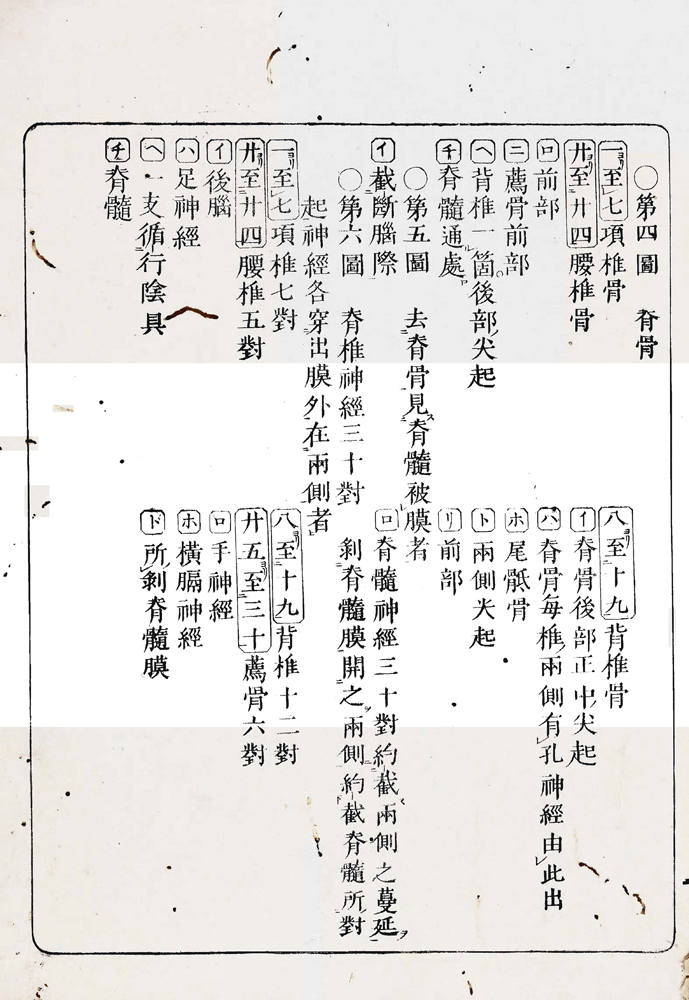 ○第四圖　脊骨
一ヨリ至七項椎骨　八ヨリ至十九背椎骨
廿ヨリ至廿四腰椎骨　イ脊骨後部正中尖起
ロ前部　ハ脊骨每椎兩側有孔神經由此出
ニ薦骨前部　ホ尾骶骨
ヘ背椎一箇後部尖起　ト兩側尖起
チ脊髓通處　リ前部
○第五圖　去脊骨見脊髓被膜者
イ截斷腦際　ロ脊髓神經三十對約截兩側之蔓延
○第六圖　脊椎神經三十對　剝脊髓膜開之兩側約截脊髓所對
起神經各穿出膜外在兩側者
一ヨリ至七項椎七對　八ヨリ至十九背椎十二對
廿ヨリ至廿四腰椎五對　廿五ヨリ至三十薦骨六對
イ後腦　ロ手神經
ハ足神經　ホ橫膈神經
ヘ一支循行陰具　ト所剝脊髓膜
チ脊髓